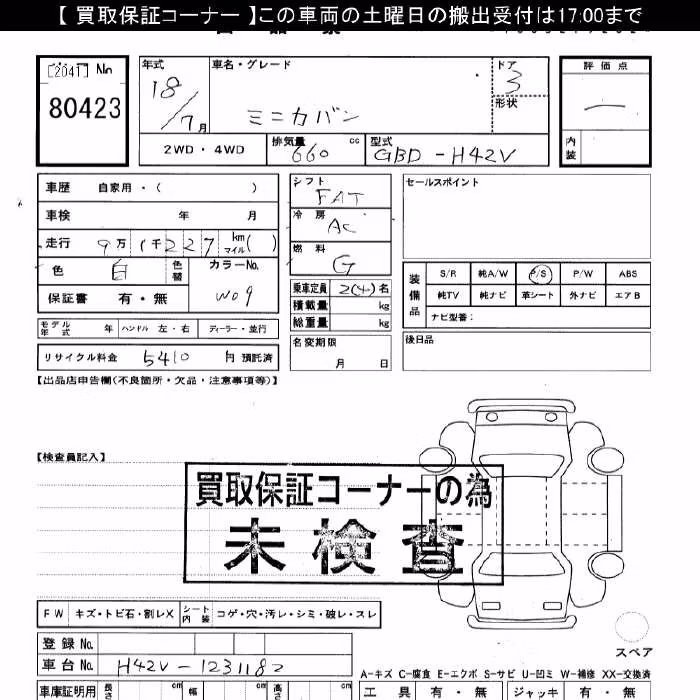 【 買取保証コーナー 】この車両の土曜日の搬出受付は17:00まで
[204] No
80423
年式 車名・グレード ドア 評価点
18/7月 ミニカバン 3 一
形状
2WD・4WD 排気量 660 cc 型式 GBD-H42V 内装
車歴 自家用・( ) シフト FAT セールスポイント
車検 年 月 冷房 AC
走行 9万1千227 km マイル( ) 燃料 G
色 白 色替 カラーNo. W09
装備品 S/R 純A/W P/S P/W ABS
保証書 有・無 乗車定員 2(4)名 純TV 純ナビ 革シート 外ナビ エアB
積載量 kg ナビ型番:
モデル年式 年 ハンドル 左・右 ディーラー・並行 総重量 kg
リサイクル料金 5410 円 預託済 名変期限 月 日 後日品
【出品店申告欄(不良箇所・欠品・注意事項等)】
【検査員記入】
買取保証コーナーの為
未検査
FW キズ・トビ石・割レX シート内装 コゲ・穴・汚レ・シミ・破レ・スレ
登録No. スペア
車台No. H42V-1231182
A-キズ C-腐食 E-エクボ S-サビ U-凹ミ W-補修 XX-交換済
車庫証明用 長さ cm 幅 cm 高さ cm 工具 有・無 ジャッキ 有・無